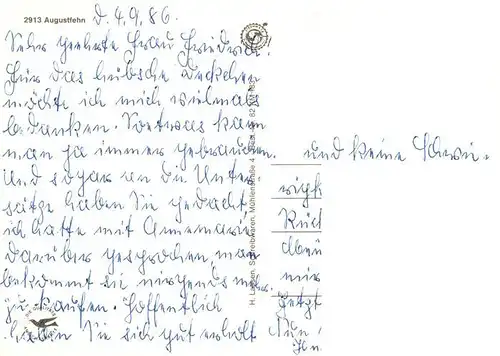 2913 Augustfehn d. 4.9.86.
Sehr geehrte Frau Friedrich.
Für das hübsche Deckchen
möchte ich mich vielmals
bedanken. So etwas kann
man ja immer gebrauchen.
Und sogar an die Unter-
sätze haben Sie gedacht
ich hatte mit Annemarie
darüber gesprochen, man
bekommt sie nirgends mehr
zu kaufen. Hoffentlich
haben Sie sich gut erholt
und keine Schwie-
rigk
Rück
mir
Jetzt
Nun